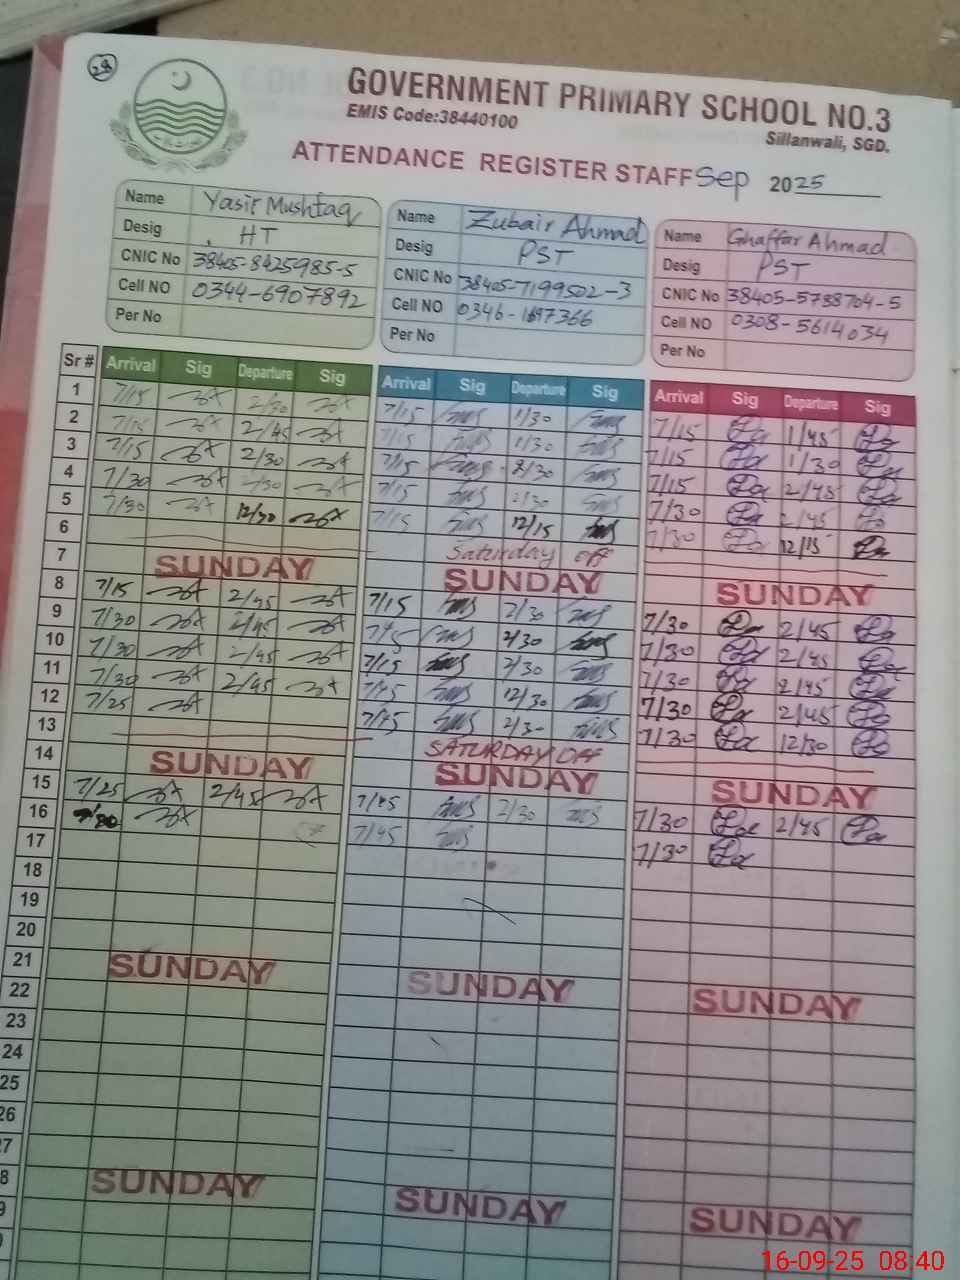 28
GOVERNMENT PRIMARY SCHOOL NO.3
EMIS Code:38440100
Sillanwali, SGD.
ATTENDANCE REGISTER STAFF Sep 2025
Name Yasir Mushtaq
Desig HT
CNIC No 38405-8425985-5
Cell NO 0344-6907892
Per No
Name Zubair Ahmad
Desig PST
CNIC No 38405-7199502-3
Cell NO 0346-1697366
Per No
Name Ghaffar Ahmad
Desig PST
CNIC No 38405-5788704-5
Cell NO 0308-5614034
Per No
Sr # Arrival Sig Departure Sig Arrival Sig Departure Sig Arrival Sig Departure Sig
1 7/15 2/30 7/15 1/30 7/15 1/45
2 7/15 2/45 7/15 1/30 7/15 1/30
3 7/15 2/30 7/15 2/30 7/15 2/45
4 7/30 2/30 7/15 2/30 7/30 2/45
5 7/30 12/30 7/15 12/15 7/30 12/15
6 Saturday off
7 SUNDAY SUNDAY SUNDAY
8 7/15 2/45 7/15 2/30 7/30 2/45
9 7/30 2/45 7/15 2/30 7/30 2/45
10 7/30 2/45 7/15 2/30 7/30 2/45
11 7/30 2/45 7/15 12/30 7/30 2/45
12 7/25 7/15 2/30 7/30 12/30
13 SATURDAY OFF
14 SUNDAY SUNDAY SUNDAY
15 7/25 2/45 7/15 2/30 7/30 2/45
16 7/30 7/15 7/30
17
18
19
20
21 SUNDAY SUNDAY SUNDAY
22
23
24
25
26
27
28 SUNDAY SUNDAY SUNDAY
16-09-25 08:40